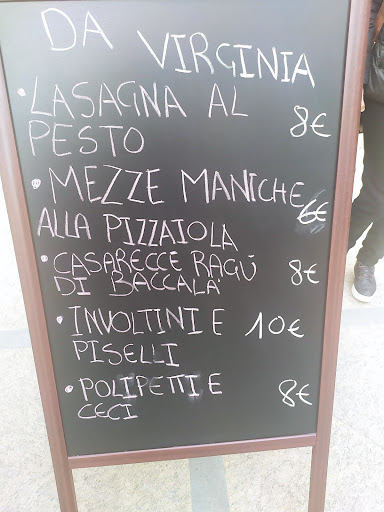 DA VIRGINIA
• LASAGNA AL
PESTO 8€
• MEZZE MANICHE
ALLA PIZZAIOLA 6€
• CASARECCE RAGÙ
DI BACCALA' 8€
• INVOLTINI E 10€
PISELLI
• POLIPETTI E
CECI 8€